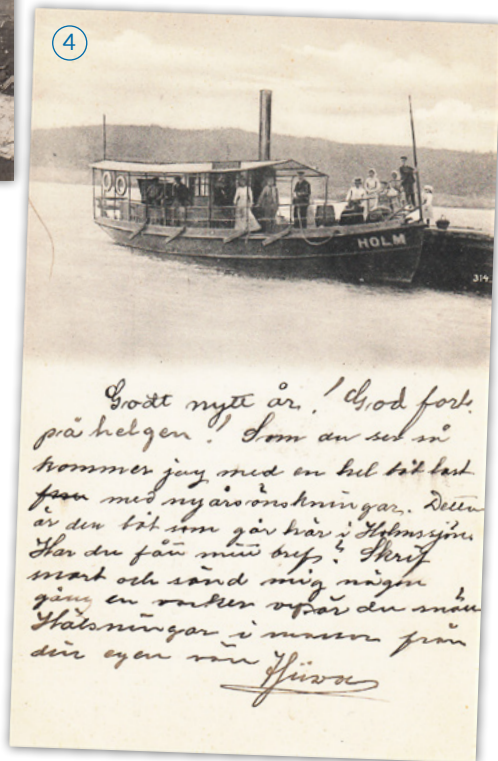 4
HOLM
314
Godt nytt år! God forts.
på helgen! Som du ser så
kommer jag med en hel båt last
med nyårsönskningar. Detta
är den båt som går här i Holmssjön.
Har du fått mitt bref? Skrif
snart och sänd mig någon
gång en vacker du
Hälsningar i massor från
din egen vän